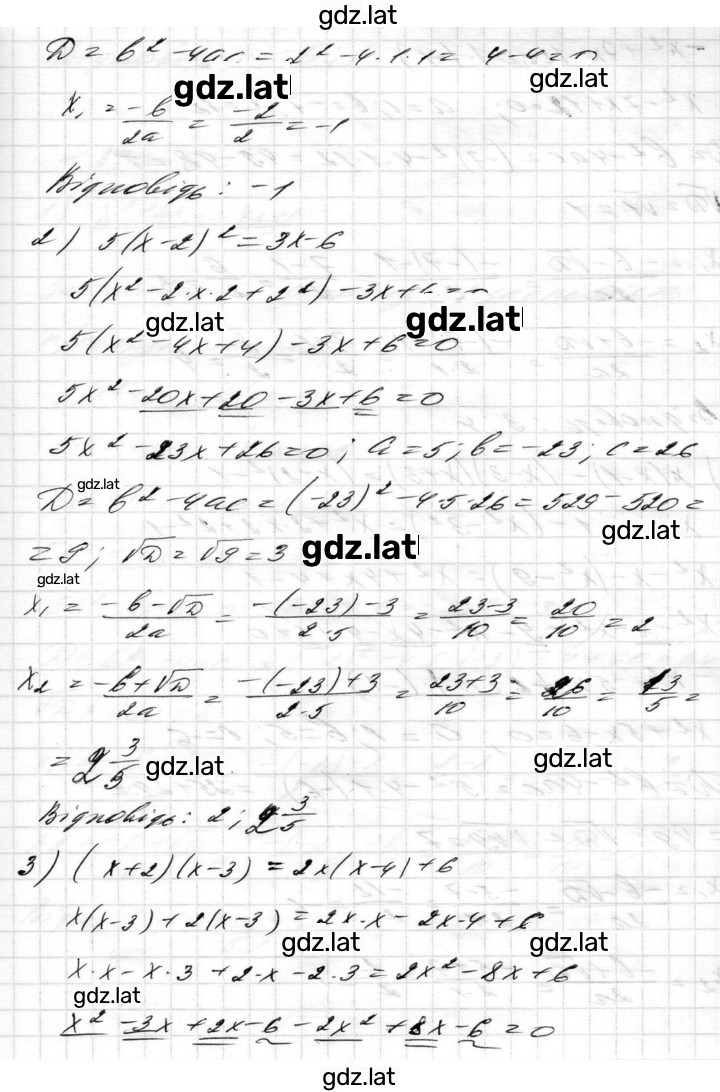 gdz.lat
D = b² - 4ac = 2² - 4·1·1 = 4-4=0
gdz.lat gdz.lat
x₁ = -b/2a = -2/2 = -1
Відповідь: -1
2) 5(x-2)² = 3x-6
5(x² - 2·x·2 + 2²) - 3x+6=0
gdz.lat gdz.lat
5(x² - 4x+4) - 3x+6=0
5x² - 20x+20 - 3x+6=0
5x² - 23x+26=0; a=5; b=-23; c=26
gdz.lat
D = b² - 4ac = (-23)² - 4·5·26 = 529 - 520 =
gdz.lat
= 9; √D = √9 = 3 gdz.lat
gdz.lat
x₁ = (-b-√D)/2a = (-(-23)-3)/2·5 = (23-3)/10 = 20/10 = 2
x₂ = (-b+√D)/2a = (-(-23)+3)/2·5 = (23+3)/10 = 26/10 = 13/5 =
= 2 3/5 gdz.lat gdz.lat
Відповідь: 2; 2 3/5
3) (x+2)(x-3) = 2x(x-4)+6
x(x-3)+2(x-3) = 2x·x - 2x·4+6
gdz.lat gdz.lat
x·x - x·3 + 2·x - 2·3 = 2x² - 8x+6
gdz.lat
x² - 3x + 2x - 6 - 2x² + 8x - 6 = 0
gdz.lat